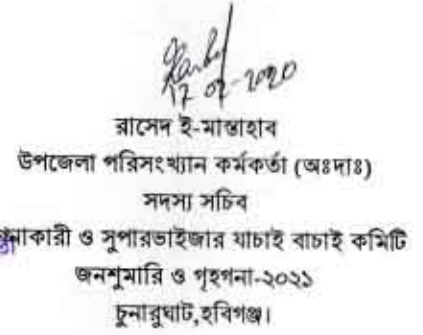 17-02-2020
রাসেদ ই-মাস্তাহাব
উপজেলা পরিসংখ্যান কর্মকর্তা (অঃদাঃ)
সদস্য সচিব
গণনাকারী ও সুপারভাইজার যাচাই বাচাই কমিটি
জনশুমারি ও গৃহগনা-২০২১
চুনারুঘাট,হবিগঞ্জ।